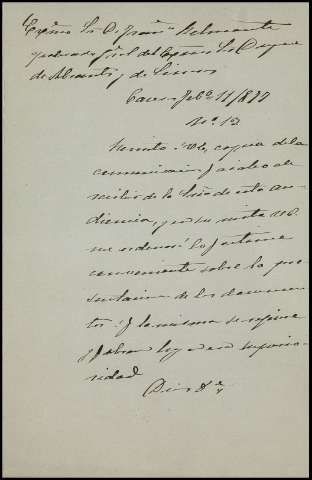 Exᵐᵒ Sr D. Franᶜᵒ Belmonte
apoderado gral del Exᵐᵒ Sr Duque
de Abrantes y de Linares
Caceres Febº 11/877
Nº. 12
Remito a Ve, copia de la
comunicacion q acabo de
recibir de la de esta au-
diencia, y en su vista V.E.
me ordenará lo q estime
conveniente sobre la pre-
sentacion de los documen-
tos q la misma se refiere
y obran hoy en esa
Dios &ª